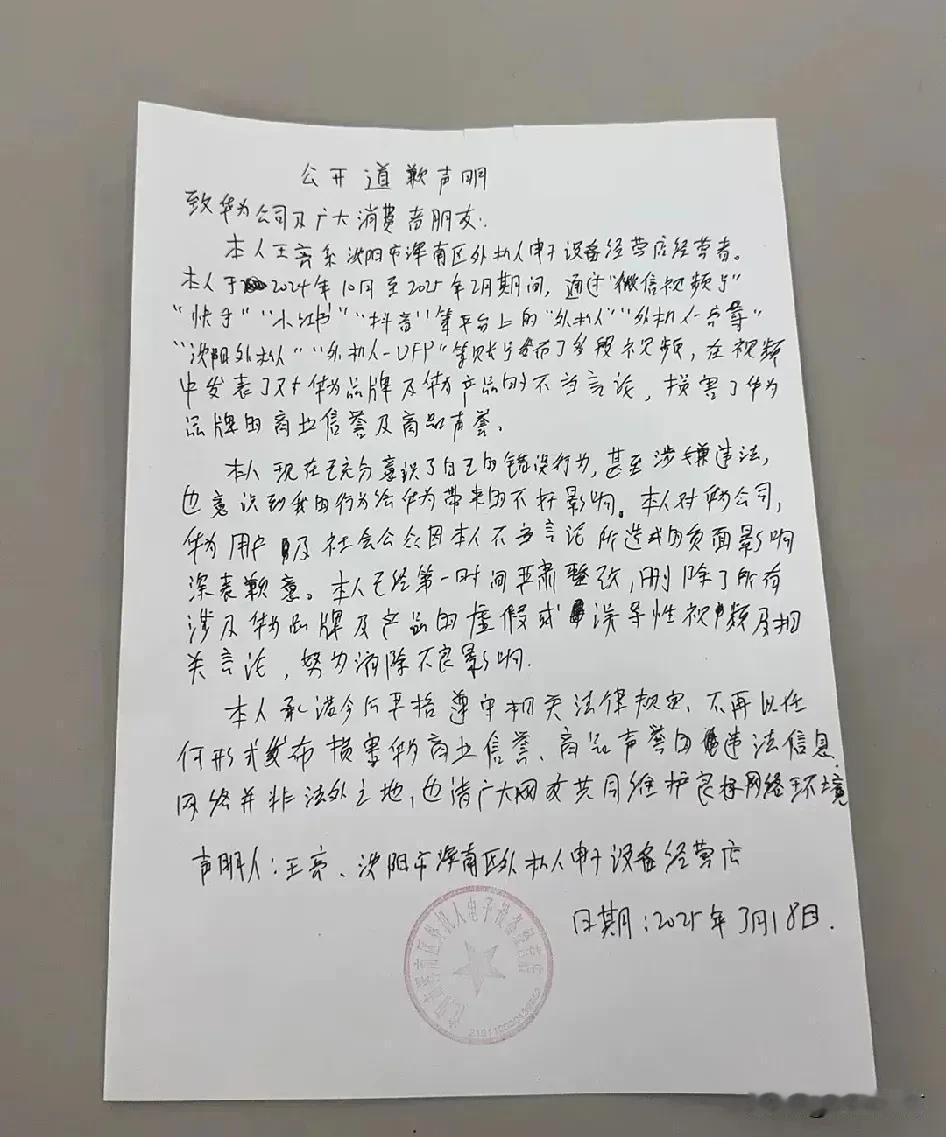 公开道歉声明
致华为公司及广大消费者朋友:
本人王亮系沈阳市浑南区外机人电子设备经营店经营者。
本人于2024年10月至2025年2月期间,通过"微信视频号"
"快手""小红书""抖音"等平台上的"外机人""外机人-亮哥"
"沈阳外机人""外机人-UFP"等账号发布了多段视频,在视频
中发表了对华为品牌及华为产品的不当言论,损害了华为
品牌的商业信誉及商品声誉。
本人现在已充分意识了自己的错误行为,甚至涉嫌违法,
也意识到我的行为给华为带来的不好影响。本人对华为公司,
华为用户及社会公众因本人不当言论所造成的负面影响
深表歉意。本人已经第一时间严肃整改,删除了所有
涉及华为品牌及产品的虚假或误导性视频及相
关言论,努力消除不良影响.
本人承诺今后严格遵守相关法律规定,不再以任
何形式发布损害华为商业信誉、商品声誉的违法信息.
网络并非法外之地,也请广大网友共同维护良好网络环境
声明人:王亮、沈阳市浑南区外机人电子设备经营店
日期:2025年3月18日.
沈阳市浑南区外机人电子设备经营店